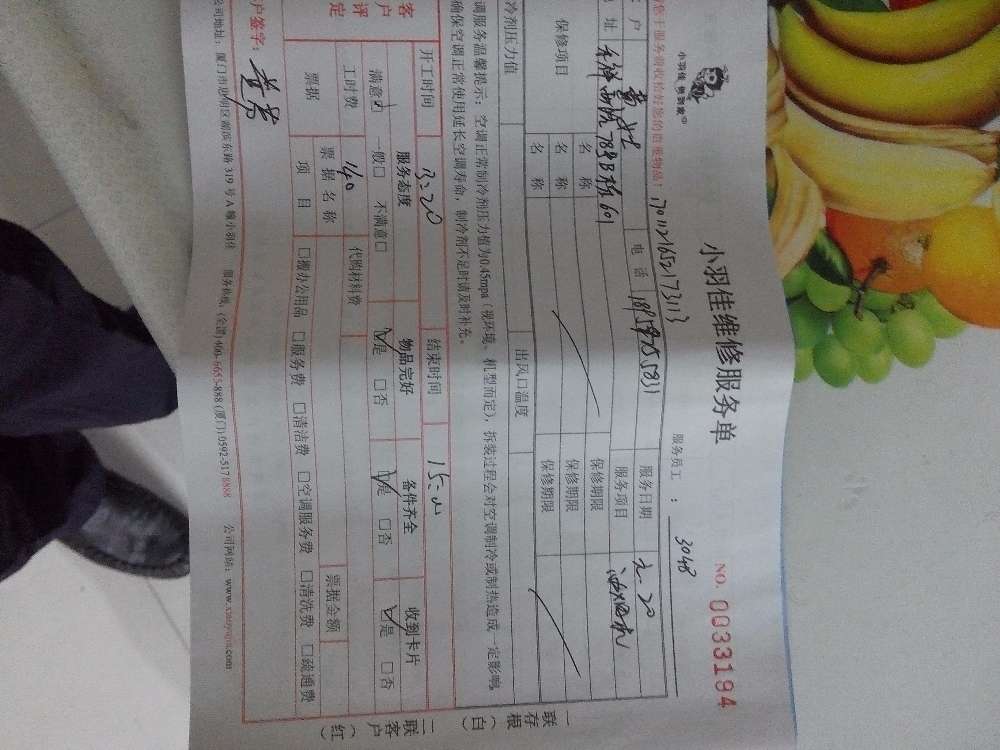 小羽佳 快到家
小羽佳维修服务单
NO. 0033194
服务员工 : 3048
您于服务前收拾好您的贵重物品！
170112165213113
客户
电话
服务日期
地址
789B栋601
服务项目
保修项目
名称
保修期限
名称
保修期限
名称
保修期限
冷剂压力值
出风口温度
调服务温馨提示：空调正常制冷剂压力值为0.45mpa（视环境、机型而定），拆装过程会对空调制冷或制热造成一定影响，
确保空调正常使用延长空调寿命，制冷剂不足时请及时补充。
开工时间
结束时间
客户评定
服务态度
物品完好
备件齐全
收到卡片
满意☑ 一般□ 不满意□
☑是 □否
☑是 □否
☑是 □否
工时费
140
代购材料费
票据
票据名称
票据金额
项目
□搬办公用品 □服务费 □清洁费 □空调服务费 □清洗费 □疏通费
户签字：
公司地址：厦门市思明区湖滨东路319号A幢小羽佳
服务热线：(全国)400-6655-888 (厦门)0592-5178888
公司网站：www.xiaoyujia.com
一联存根（白）
二联客户（红）